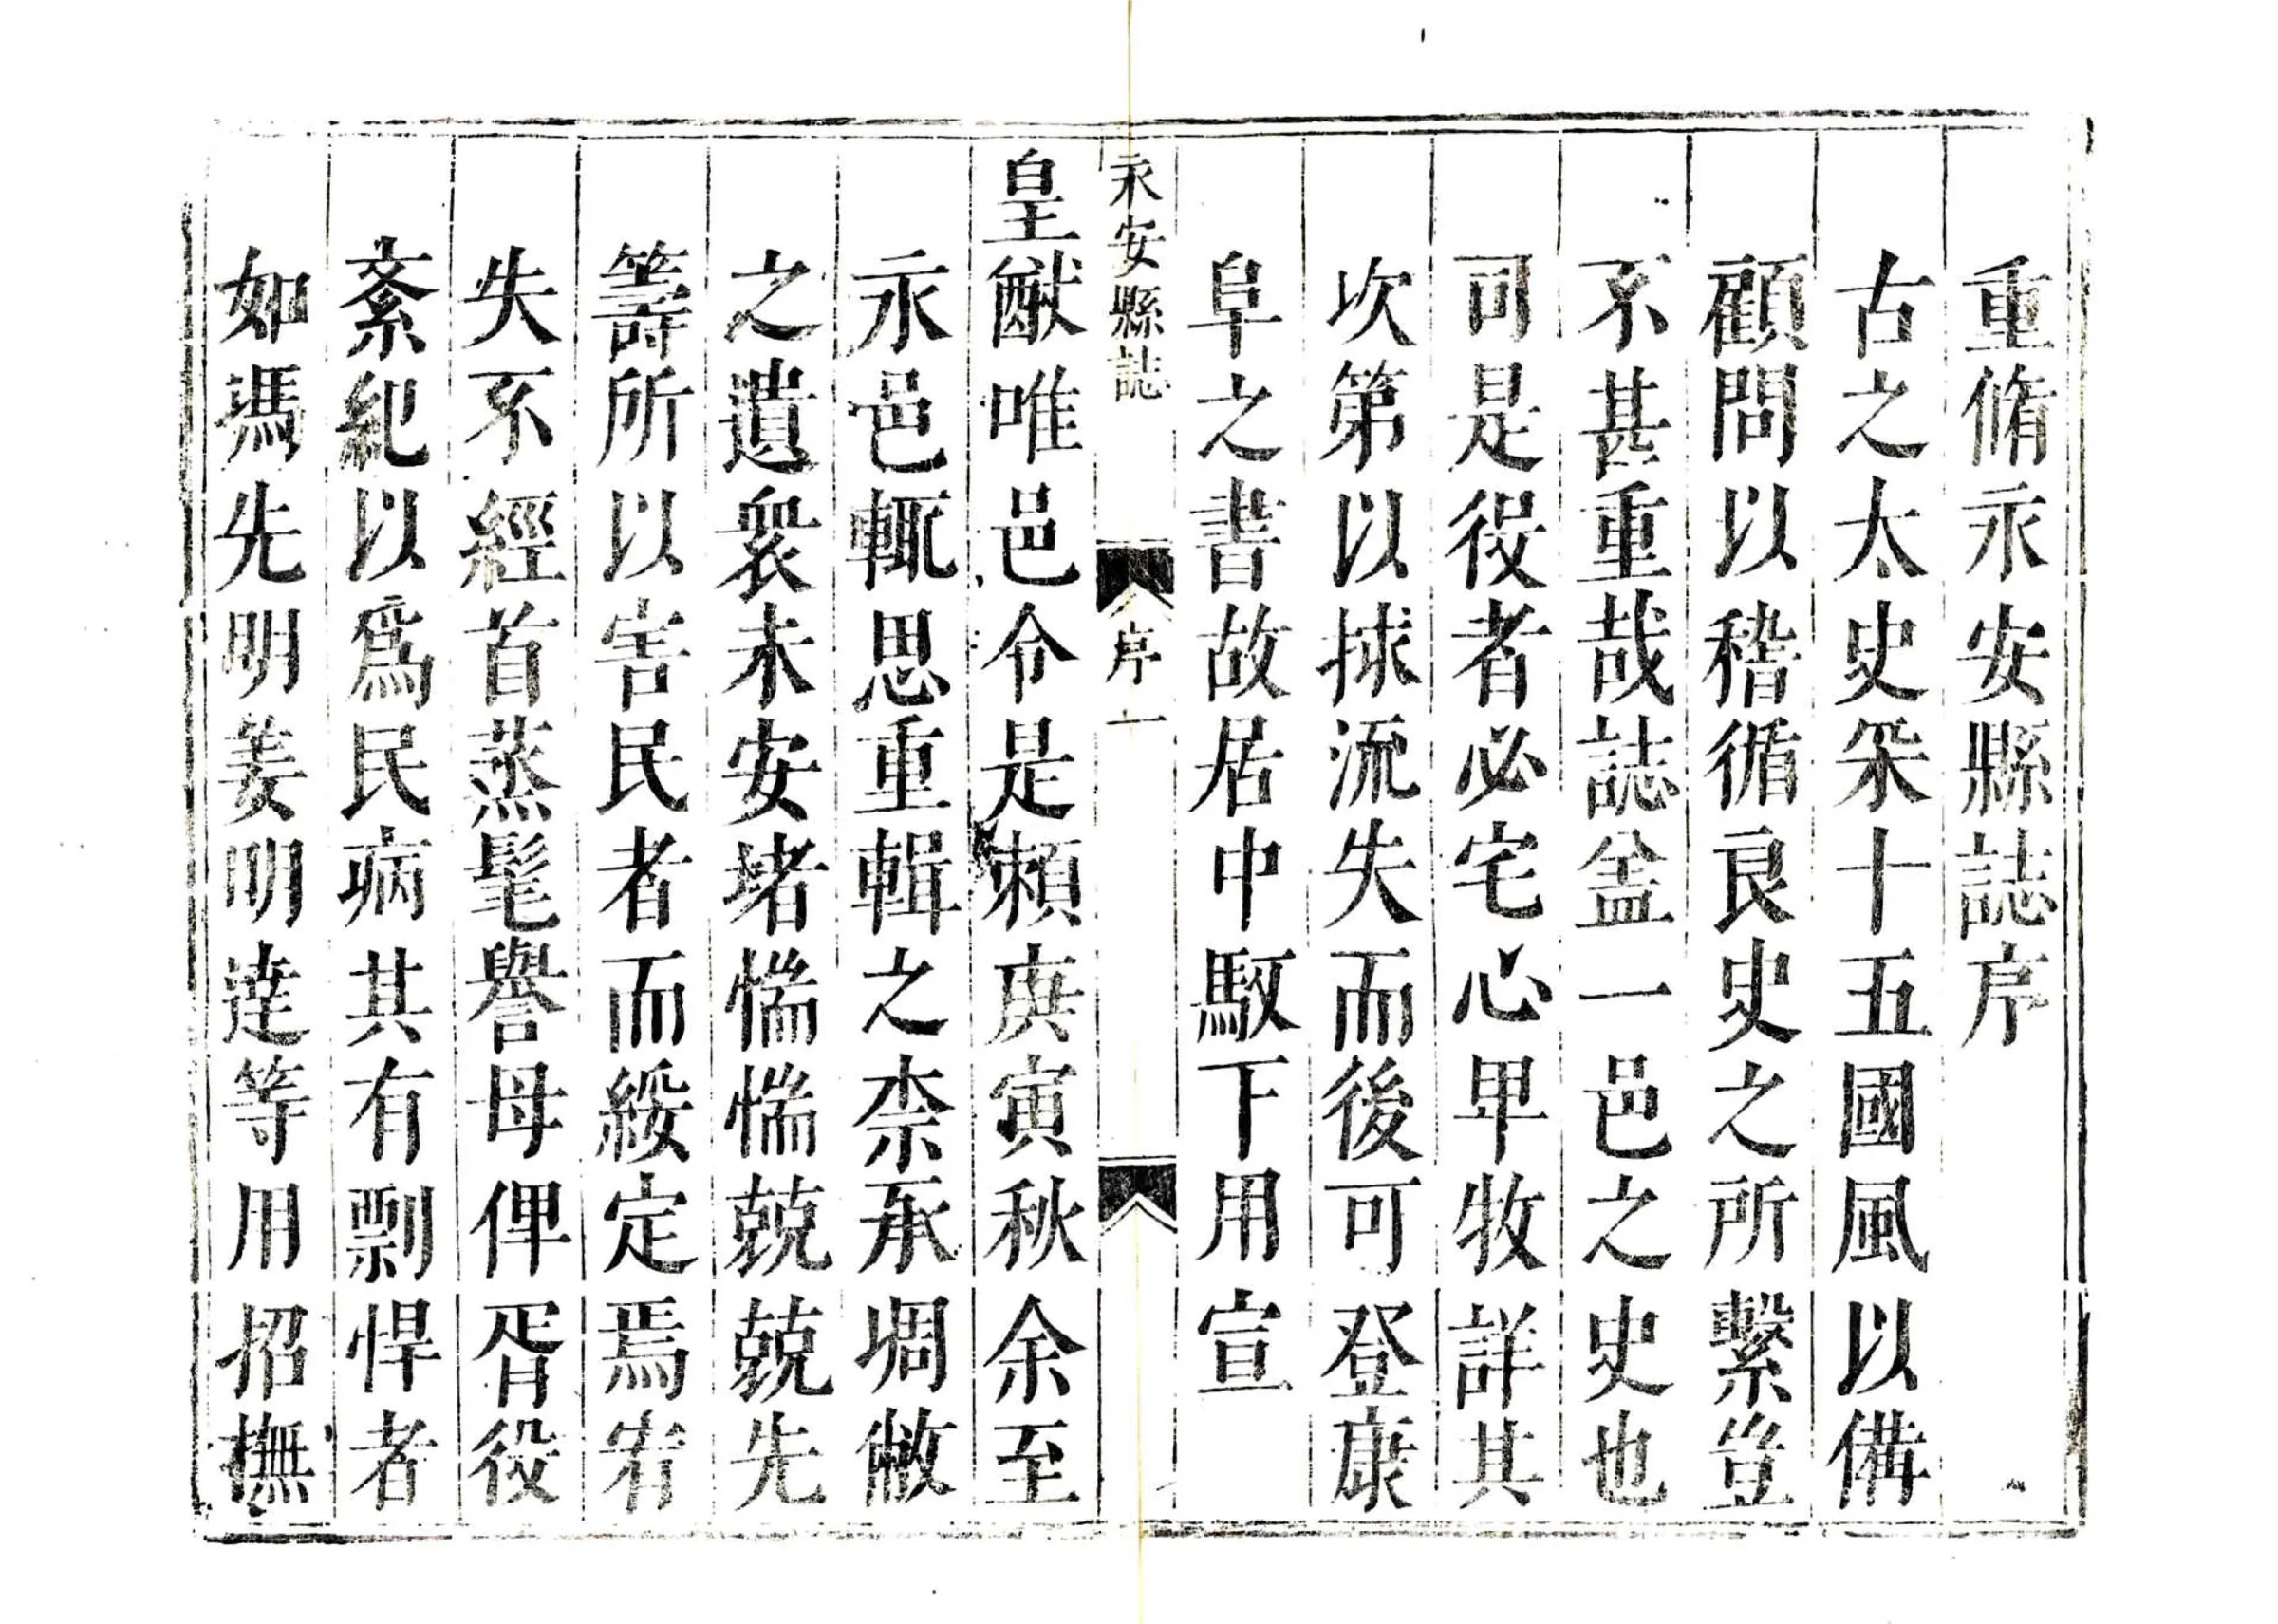 重脩永安縣誌序
古之太史采十五國風以備
顧問以稽循良史之所繫豈
不甚重哉誌盖一邑之史也
司是役者必宅心卑牧詳其
次第以捄流失而後可登康
阜之書故居中馭下用宣
永安縣誌 序 一
皇猷唯邑令是頼庚寅秋余至
永邑輒思重輯之柰承凋敝
之遺衆未安堵惴惴兢兢先
籌所以害民者而綏定焉宥
失不經首蒸髦譽毋俾胥役
紊紀以爲民病其有剽悍者
如馮先明姜明達等用招撫